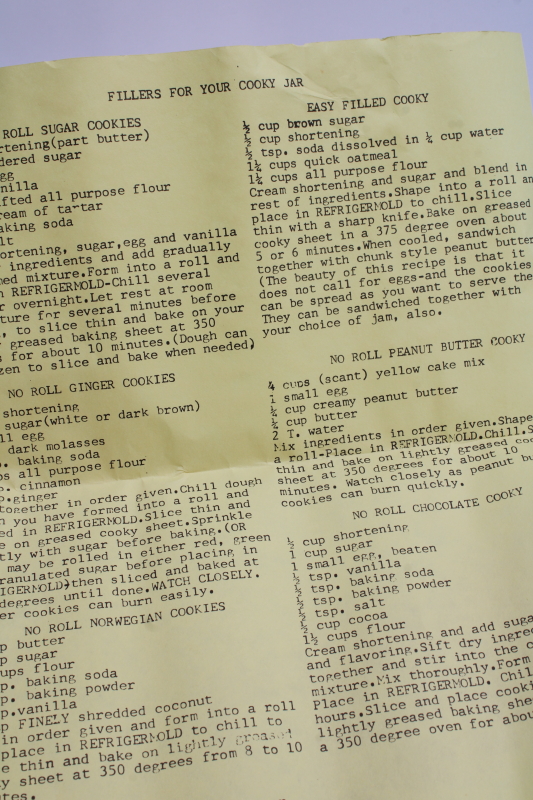 FILLERS FOR YOUR COOKY JAR
ROLL SUGAR COOKIES
rtening(part butter)
dered sugar
gg
nilla
fted all purpose flour
ream of tartar
aking soda
lt
ortening, sugar,egg and vanilla
ingredients and add gradually
med mixture.Form into a roll and
n REFRIGERMOLD-Chill several
r overnight.Let rest at room
ture for several minutes before
, to slice thin and bake on your
greased baking sheet at 350
s for about 10 minutes.(Dough can
zen to slice and bake when needed)
NO ROLL GINGER COOKIES
shortening
sugar(white or dark brown)
ll egg
dark molasses
p. baking soda
ps all purpose flour
p. cinnamon
p.ginger
together in order given.Chill dough
n you have formed into a roll and
ed in REFRIGERMOLD.Slice thin and
e on greased cooky sheet.Sprinkle
tly with sugar before baking.(OR
may be rolled in either red, green
ranulated sugar before placing in
IGERMOLD)then sliced and baked at
degrees until done.WATCH CLOSELY.
er cookies can burn easily.
NO ROLL NORWEGIAN COOKIES
p butter
p sugar
ups flour
p. baking soda
p. baking powder
p.vanilla
p FINELY shredded coconut
in order given and form into a roll
place in REFRIGERMOLD to chill to
e thin and bake on lightly greased
y sheet at 350 degrees from 8 to 10
tes.
EASY FILLED COOKY
½ cup brown sugar
½ cup shortening
½ tsp. soda dissolved in ¼ cup water
1¼ cups quick oatmeal
1¼ cups all purpose flour
Cream shortening and sugar and blend in
rest of ingredients.Shape into a roll an
place in REFRIGERMOLD to chill.Slice
thin with a sharp knife.Bake on greased
cooky sheet in a 375 degree oven about
5 or 6 minutes.When cooled, sandwich
together with chunk style peanut butter
(The beauty of this recipe is that it
does not call for eggs-and the cookies
can be spread as you want to serve the
They can be sandwiched together with
your choice of jam, also.
NO ROLL PEANUT BUTTER COOKY
4 cups (scant) yellow cake mix
1 small egg
½ cup creamy peanut butter
½ cup butter
2 T. water
Mix ingredients in order given.Shape
a roll-Place in REFRIGERMOLD.Chill.S
thin and bake on lightly greased coo
sheet at 350 degrees for about 10
minutes. Watch closely as peanut bu
cookies can burn quickly.
NO ROLL CHOCOLATE COOKY
½ cup shortening
1 cup sugar
1 small egg, beaten
½ tsp. vanilla
½ tsp. baking soda
½ tsp. baking powder
½ tsp. salt
½ cup cocoa
1½ cups flour
Cream shortening and add suga
and flavoring.Sift dry ingre
together and stir into the c
mixture.Mix thoroughly.Form
Place in REFRIGERMOLD. Chil
hours.Slice and place cooki
lightly greased baking shee
a 350 degree oven for abou